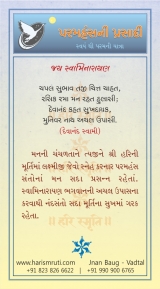 પરમહંસની પ્રસાદી
જય સ્વામિનારાયણ
ચપળ સુભાવ તજી ચિત્ત ચાહત,
રસિક રમા મન રહત હુલાસી;
દેવાનંદ કહત સુખદાયક,
મુનિવર નાથ અચલ ઉપાસી.
(દેવાનંદ સ્વામી)
મનની ચંચળતાને ત્યજીને શ્રી હરિની
મૂર્તિમાં લક્ષ્મીજી જેવો સ્નેહ કરનાર પરમહંસ
સંતોનાં મન સદા પ્રસન્ન રહેતાં.
સ્વામિનારાયણ ભગવાનની અચલ ઉપાસના
કરવાથી નંદસંતો સદા મૂર્તિના સુખમાં ગરક
રહેતા.
॥ હરિ સ્મૃતિ ॥
www.harismruti.com | Jnan Baug - Vadtal
+91 823 826 6622 | +91 990 900 6765